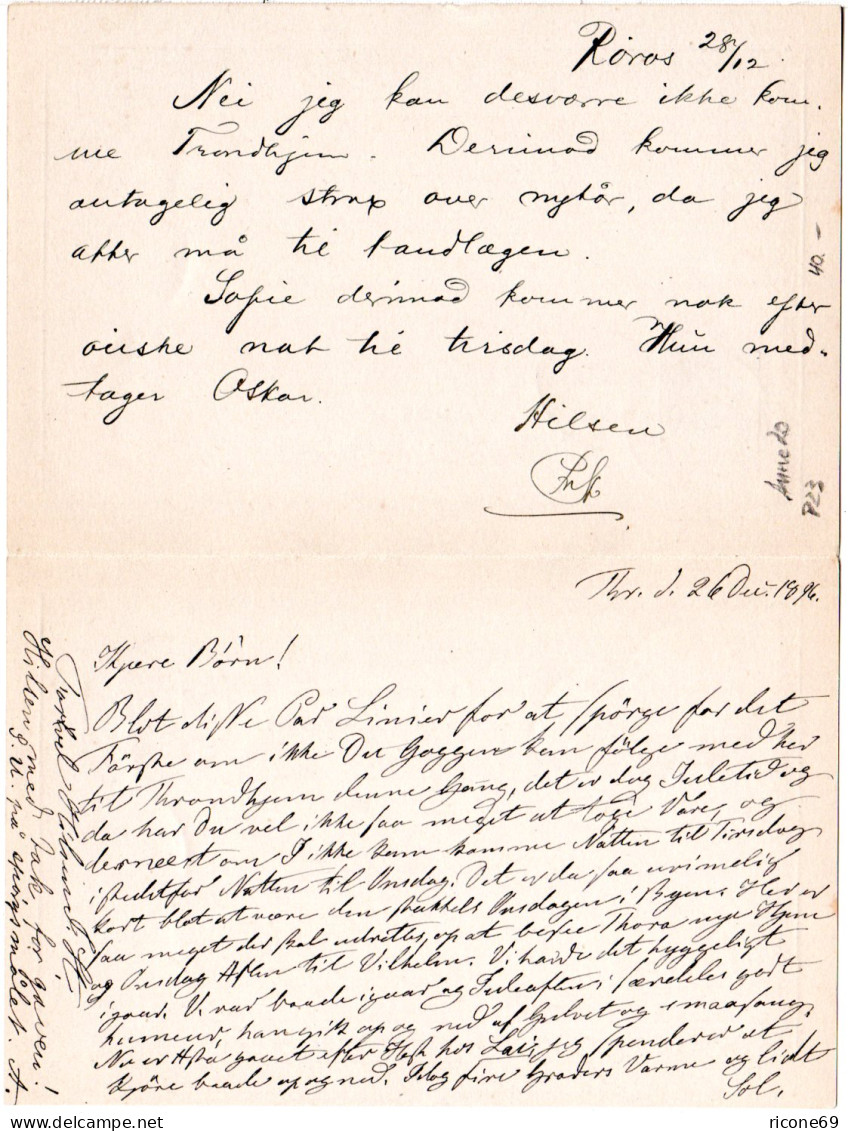 Røros 28/12.
Nei jeg kan desværre ikke kom-
me Trondhjem. Derimod kommer jeg
antagelig strax over nytår, da jeg
atter må til tandlægen.
Sofie derimod kommer nok efter
ønske nat til tirsdag. Hun med-
tager Oskar.
Hilsen
40.-
P23
Thr. d. 26 Dec. 1896.
Kjære Børn!
Blot disse Par Linier for at spörge for det
Förste om ikke Du Goggen kan fölge med her
til Throndhjem denne Gang, det er dog Juletid og
da har Du vel ikke saa meget at tage Vare, og
dernæst om I ikke kan komme Natten til Tirsdag
istedetfor Natten til Onsdag. Det er da saa urimelig
kort blot at være den stakkels Onsdagen i Byen. Her er
saa meget der skal udrettes, op at bese Thora nye Hjem
og Onsdag Aften til Vilhelm. Vi havde det hyggeligt
igaar. V. var baade igaar og Juleaften i særdeles godt
humeur, han gik op og ned af Gulvet og smaasang.
Nu er Asta gaaet efter Hest hos Lais, jeg spenderer at
kjöre baade op og ned. Idag fire Graders Varme og lidt
Sol.
Farvel Hilsen
Hilsen med tak for gaven!
J. U. på spørgsmålet. A.
ricone69